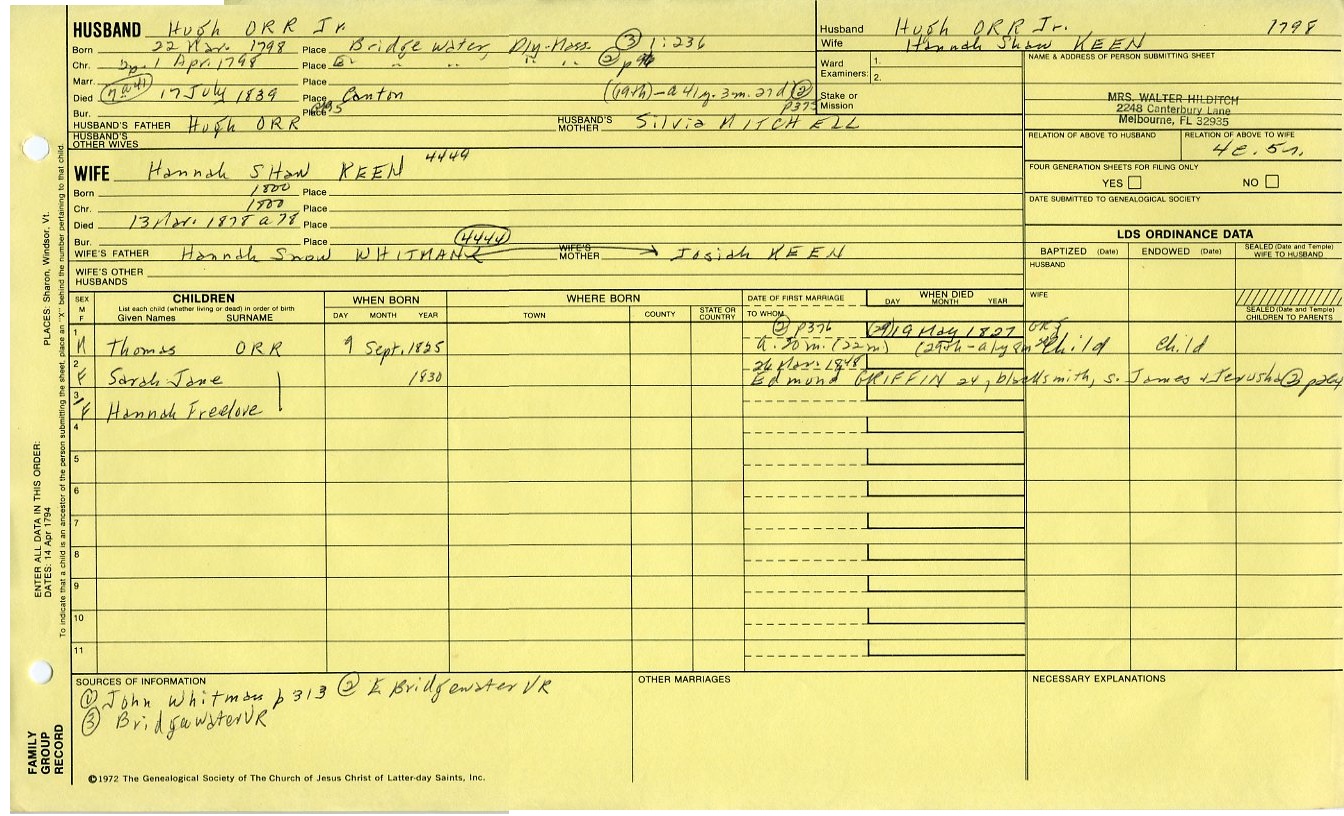 HUSBAND Hugh ORR Jr.
Born 22 Mar. 1798 Place Bridgewater, Ply-Mass. ③ 1:236
Chr. 1 Apr. 1798 Place E " " " " ② p96
Marr. Place
Died 17 July 1839 Place Canton (19th)-a 41y. 3m. 27d ② p375
Bur. Place
HUSBAND'S FATHER Hugh ORR HUSBAND'S MOTHER Silvia MITCHELL
HUSBAND'S OTHER WIVES
WIFE Hannah Shaw KEEN 4449
Born 1800 Place
Chr. 1800 Place
Died 13 Mar. 1878 a 78 Place
Bur. Place 4444
WIFE'S FATHER Hannah Snow WHITMAN WIFE'S MOTHER Josiah KEEN
WIFE'S OTHER HUSBANDS
Husband Hugh ORR Jr. 1798
Wife Hannah Shaw KEEN
Ward Examiners: 1. 2.
Stake or Mission
NAME & ADDRESS OF PERSON SUBMITTING SHEET
MRS. WALTER HILDITCH
2248 Canterbury Lane
Melbourne, FL 32935
RELATION OF ABOVE TO HUSBAND RELATION OF ABOVE TO WIFE
4c. 5r.
FOUR GENERATION SHEETS FOR FILING ONLY
YES NO
DATE SUBMITTED TO GENEALOGICAL SOCIETY
LDS ORDINANCE DATA
BAPTIZED (Date) ENDOWED (Date) SEALED (Date and Temple) WIFE TO HUSBAND
HUSBAND
WIFE
SEALED (Date and Temple) CHILDREN TO PARENTS
SEX M F CHILDREN WHEN BORN WHERE BORN DATE OF FIRST MARRIAGE WHEN DIED
List each child (whether living or dead) in order of birth
Given Names SURNAME DAY MONTH YEAR TOWN COUNTY STATE OR COUNTRY TO WHOM DAY MONTH YEAR
② p376 (29) 19 May 1827 GR3
1 M Thomas ORR 9 Sept. 1825 a. 20 m. (22m) (29th-a 1y 8m Child Child
26 Mar. 1848
2 F Sarah Jane 1830 Edmund GRIFFIN 24, blacksmith, s. James & Jerusha ② p264
3 F Hannah Freelove
4
5
6
7
8
9
10
11
SOURCES OF INFORMATION
① John Whitman p 313 ② E Bridgewater VR
③ Bridgewater VR
OTHER MARRIAGES
NECESSARY EXPLANATIONS
©1972 The Genealogical Society of The Church of Jesus Christ of Latter-day Saints, Inc.
FAMILY GROUP RECORD
ENTER ALL DATA IN THIS ORDER:
DATES: 14 Apr 1794
PLACES: Sharon, Windsor, Vt.
To indicate that a child is an ancestor of the person submitting the sheet, place an "X" behind the number pertaining to that child.